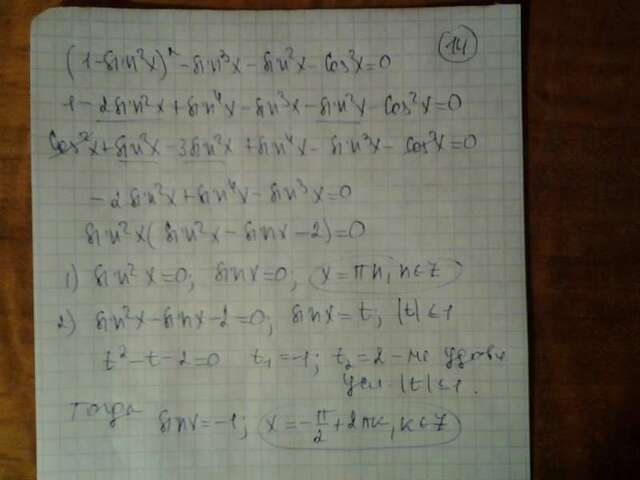 14
(1-sin²x)² - sin³x - sin²x - cos²x = 0
1 - 2sin²x + sin⁴x - sin³x - sin²x - cos²x = 0
cos²x + sin²x - 3sin²x + sin⁴x - sin³x - cos²x = 0
-2sin²x + sin⁴x - sin³x = 0
sin²x(sin²x - sinx - 2) = 0
1) sin²x = 0; sinx = 0; x = πn, n∈Z
2) sin²x - sinx - 2 = 0; sinx = t; |t| ≤ 1
t² - t - 2 = 0 t₁ = -1; t₂ = 2 - не удовл
усл. |t| ≤ 1.
Тогда
sinx = -1; x = -π/2 + 2πк, к∈Z